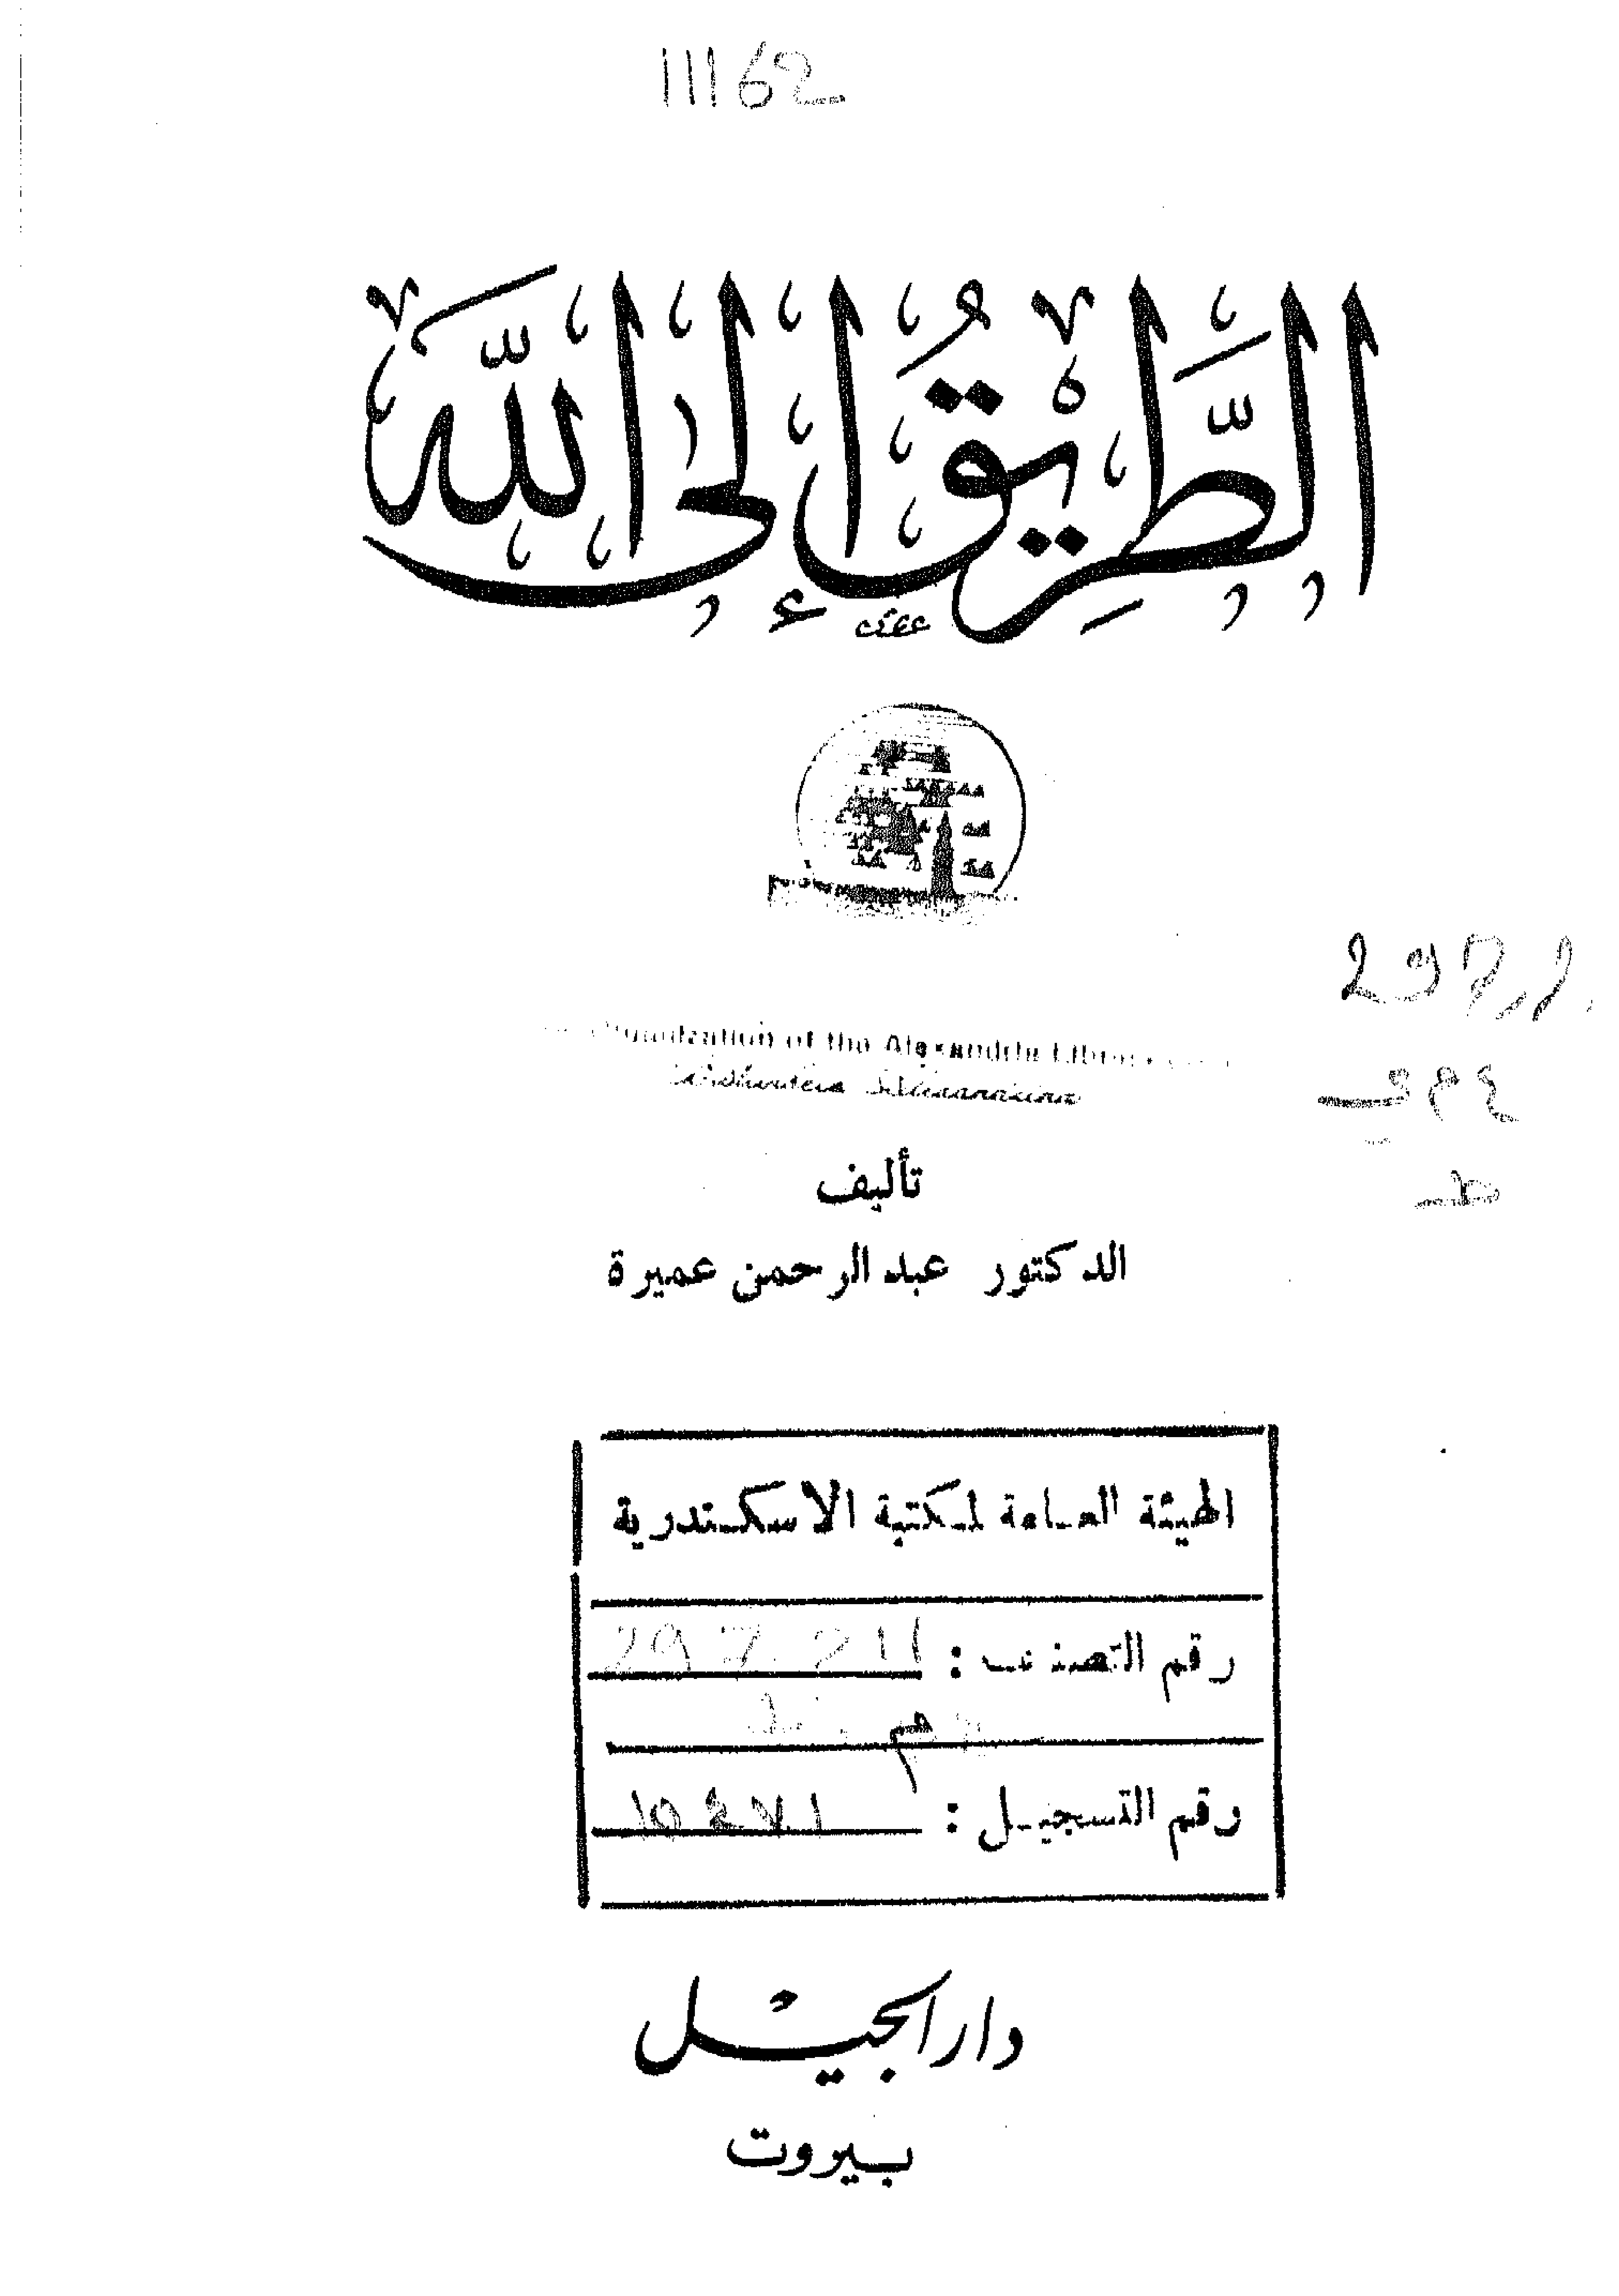 11162
الطَّرِيْقُ إِلَى اللَّهِ
Organization of the Alexandria Library
Bibliotheca Alexandrina
تأليف
الدكتور عبد الرحمن عميرة
الهيئة العامة لمكتبة الاسكندرية
رقم التصنيف : 297.211
رقم التسجيل :
دار الجيل
بيروت